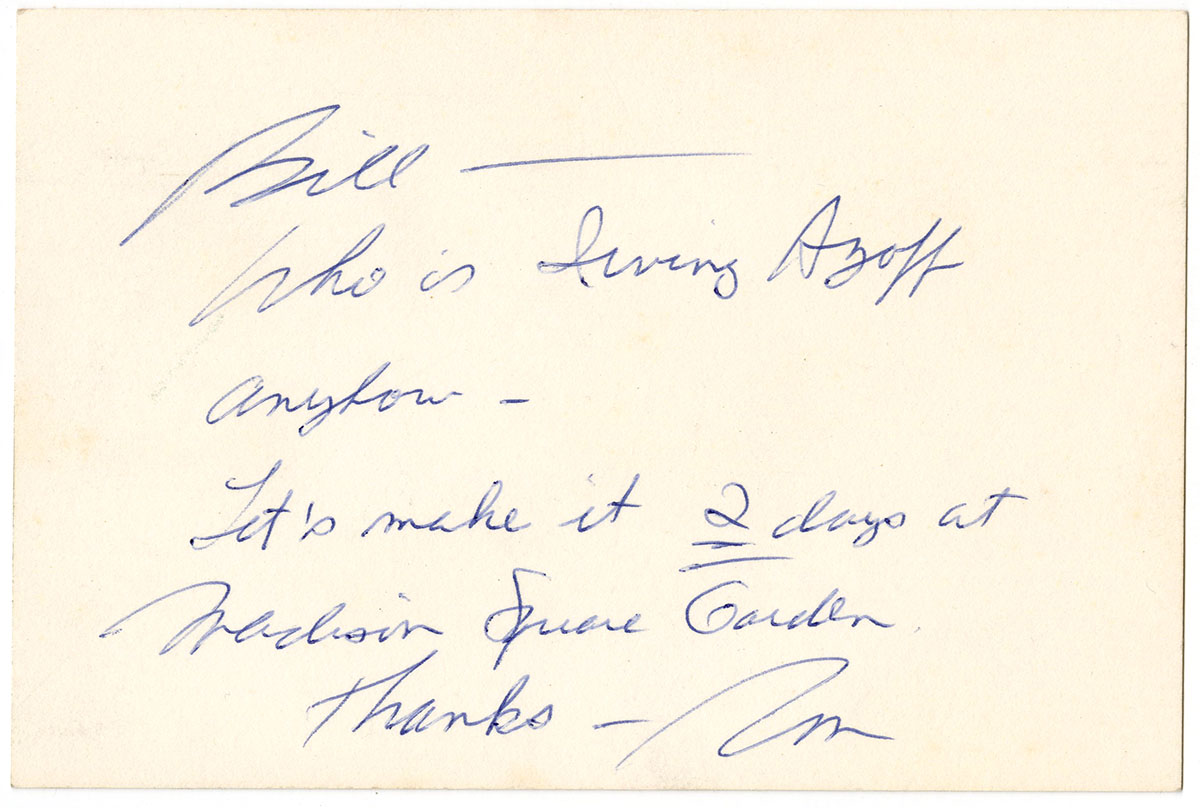 Bill —
Who is Irving Azoff
anyhow -
Let's make it 2 days at
Madison Square Garden.
Thanks —